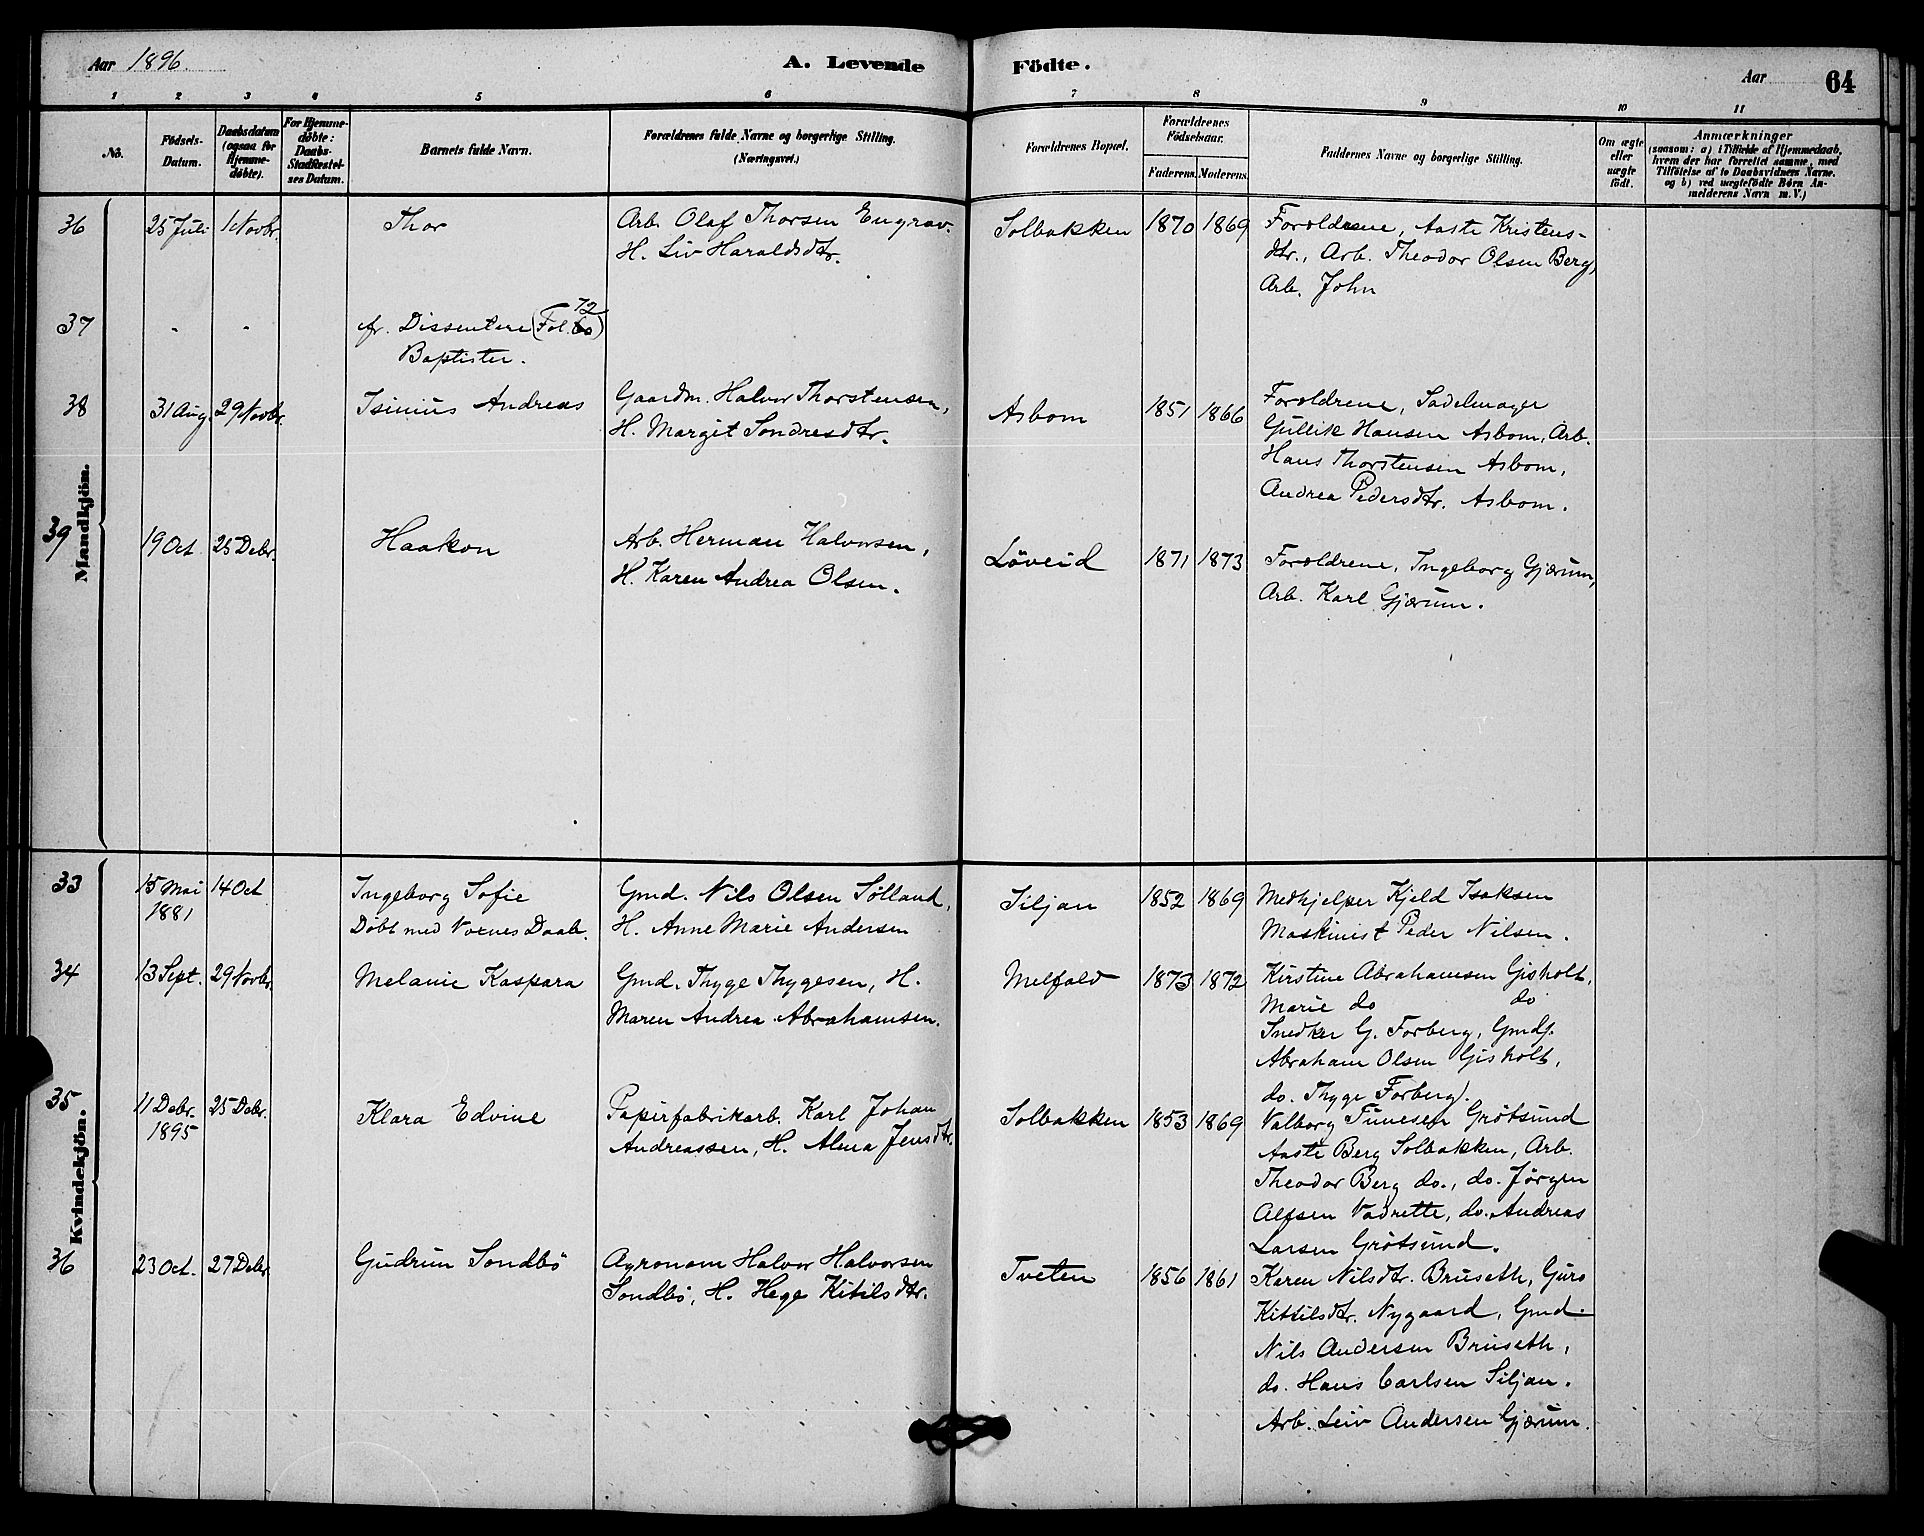 Aar 1896.
A. Levende Födte.
Aar 64
1 2 3 4 5 6 7 8 9 10 11
No.
Födsels-Datum.
Daabsdatum (ogsaa for Hjemme-döbte).
For Hjemme-döbte: Daabs-Stadfæstel-ses Datum.
Barnets fulde Navn.
Forældrenes fulde Navne og borgerlige Stilling. (Næringsvei.)
Forældrenes Bopæl.
Forældrenes Födselsaar.
Faderens. Moderens.
Faddernes Navne og borgerlige Stilling.
Om ægte eller uægte födt.
Anmærkninger
(saasom: a) i Tilfælde af Hjemmedaab,
hvem der har forrettet samme, med
Tilföielse af to Daabsvidners Navne,
og b) ved uægtefödte Börn An-
melderens Navn m. V.)
Mandkjön.
36 25 Juli 1 Novbr. Thor
Arb. Olaf Thorsen Engrav.
H. Liv Haraldsdtr.
Solbakken 1870 1869
Forældrene, Aaste Kristens-
dtr., Arb. Theodor Olsen Berg,
Arb. John
37 - - fr. Dissentere (Fol. 72)
Baptister.
38 31 Aug 29 Novbr. Isinius Andreas
Gaardm. Halvor Thorstensen,
H. Margit Sondresdtr.
Asbom 1851 1866
Forældrene, Sadelmager
Gullik Hansen Asbom, Arb.
Hans Thorstensen Asbom,
Andrea Pedersdtr. Asbom.
39 19 Oct. 25 Debr. Haakon
Arb. Herman Halvorsen,
H. Karen Andrea Olsen.
Löveid 1871 1873
Forældrene, Ingeborg Gjærum,
Arb. Karl Gjærum.
Kvindekjön.
33 15 Mai 1881 14 Oct
Ingeborg Sofie
Döbt med Voxnes Daab.
Gmd. Nils Olsen Sölland,
H. Anne Marie Andersen
Siljan 1852 1869
Medhjelper Kjeld Isaksen
Maskinist Peder Nilsen.
34 13 Sept. 29 Novbr. Melanie Kaspara
Gmd. Thyge Thygesen, H.
Maren Andrea Abrahamsen.
Melfald 1873 1872
Kirstine Abrahamsen Gisholt,
Marie do do
Snedker G. Forberg, Gmdf.
Abraham Olsen Gisholt,
do. Thyge Forberg).
35 11 Debr. 1895 25 Debr. Klara Edvine
Papirfabrikarb. Karl Johan
Andreassen, H. Alma Jensdtr.
Solbakken 1853 1869
Valborg Tunesen Grötsund
Aaste Berg Solbakken, Arb.
Theodor Berg do., do. Jörgen
Alfsen Vadrette, do. Andreas
Larsen Grötsund.
36 23 Oct. 27 Debr. Gudrun Sondbö
Agronom Halvor Halvorsen
Sondbö, H. Hege Kitilsdtr.
Tveten 1856 1861
Karen Nilsdtr. Bruseth, Guro
Kittilsdtr. Nygaard, Gmd.
Nils Andersen Bruseth,
do. Hans Carlsen Siljan.
Arb. Leiv Andersen Gjærum.